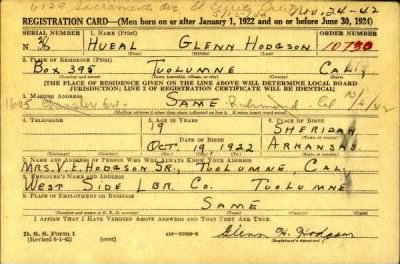 Nov. 24-42
REGISTRATION CARD—(Men born on or after January 1, 1922 and on or before June 30, 1924)
SERIAL NUMBER
1. NAME (Print)
ORDER NUMBER
N 36
HUEAL GLENN HODGSON
10730
2. PLACE OF RESIDENCE (Print)
BOX 395 TUOLUMNE CAL.
[THE PLACE OF RESIDENCE GIVEN ON THE LINE ABOVE WILL DETERMINE LOCAL BOARD
JURISDICTION; LINE 2 OF REGISTRATION CERTIFICATE WILL BE IDENTICAL]
3. MAILING ADDRESS
1605 Ave. SAME Richmond, Cal
4. TELEPHONE
5. AGE IN YEARS
6. PLACE OF BIRTH
19
SHERIDAN
DATE OF BIRTH
OCT. 19, 1922
ARKANSAS
7. NAME AND ADDRESS OF PERSON WHO WILL ALWAYS KNOW YOUR ADDRESS
MRS. V. E. HODGSON SR., TUOLUMNE, CAL.
8. EMPLOYER'S NAME AND ADDRESS
WEST SIDE LBR. CO. TUOLUMNE
9. PLACE OF EMPLOYMENT OR BUSINESS
SAME
I AFFIRM THAT I HAVE VERIFIED ABOVE ANSWERS AND THAT THEY ARE TRUE.
D. S. S. Form 1
(Revised 6-1-42)
Glenn H. Hodgson
(Registrant's signature)